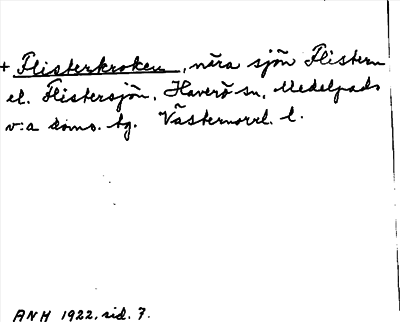 + Flisterkroken, nära sjön Flistern
el. Flistersjön, Haverö sn, Medelpads
v:a doms. tg. Västernorrl. l.
ANM 1922, sid. 7.